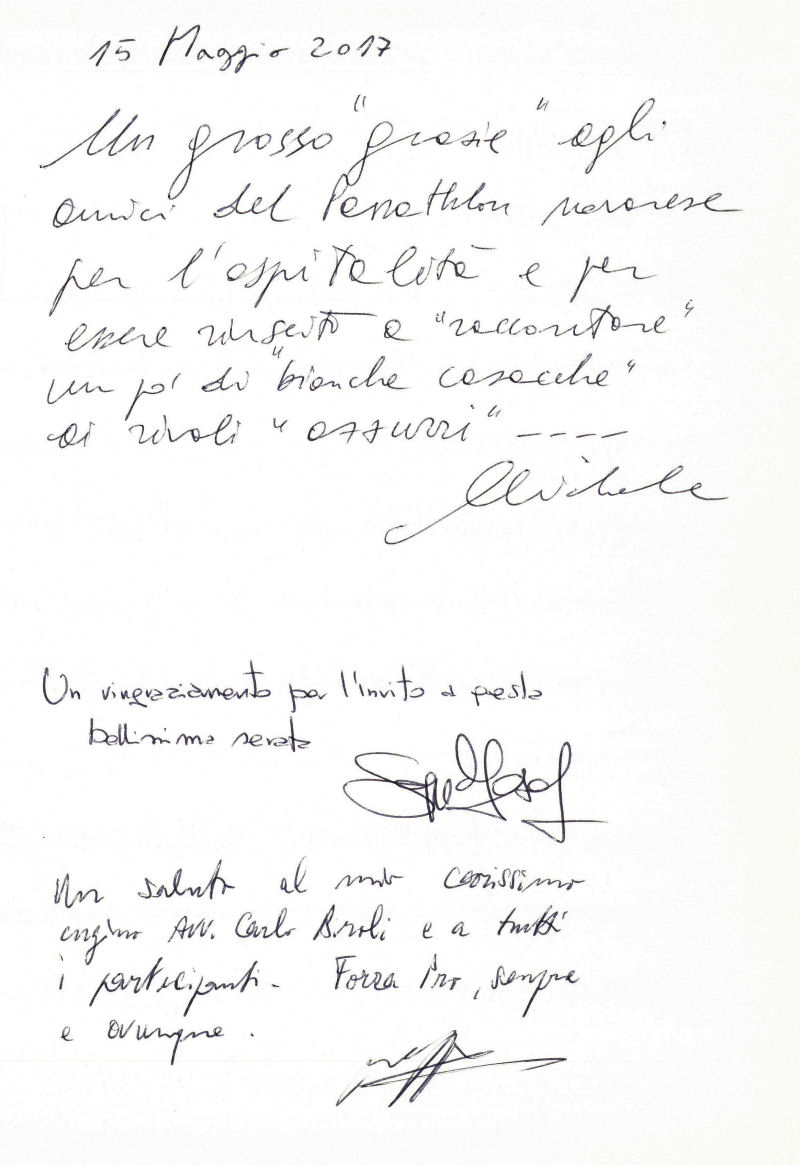 15 Maggio 2017
Un grosso "grazie" agli
amici del Panathlon novarese
per l'ospitalità e per
essere riuscito a "raccontare"
un po' di "bianche casacche"
ai rivali "azzurri" ----
Michele
Un ringraziamento per l'invito a questa
bellissima serata
Un saluto al mio carissimo
cugino Avv. Carlo Biroli e a tutti
i partecipanti. Forza Pro, sempre
e ovunque.